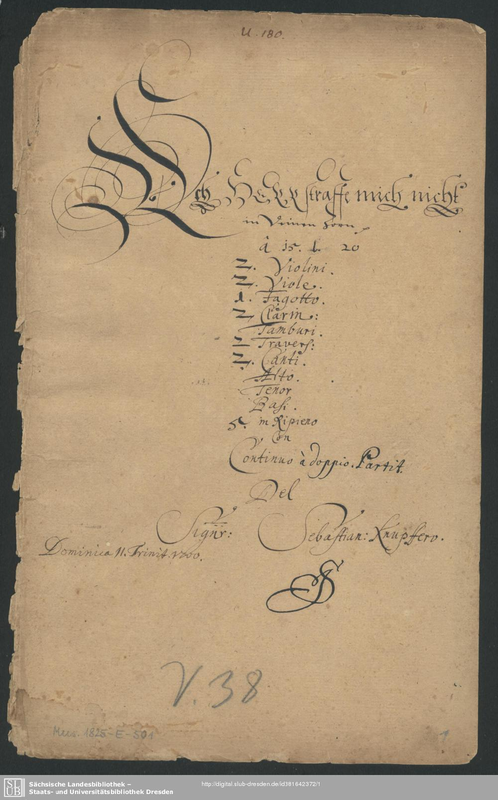 U. 180.
Ach HERR straffe mich nicht
in Deinen Zorn
â 15. l. 20
2. Violini.
2. Viole.
1. Fagotto.
2. Clarin:
Tamburi.
2. Travers:
2. Canti.
Alto.
Tenor
Bass.
5. in Ripieno
Con
Continuo â doppio. Partit.
Del
Signr: Sebastian: Knüpfero.
Dominica 11. Trinit. 1700.
V. 38
Mus. 1825-E-501
1
Sächsische Landesbibliothek –
Staats- und Universitätsbibliothek Dresden
http://digital.slub-dresden.de/id381642372/1